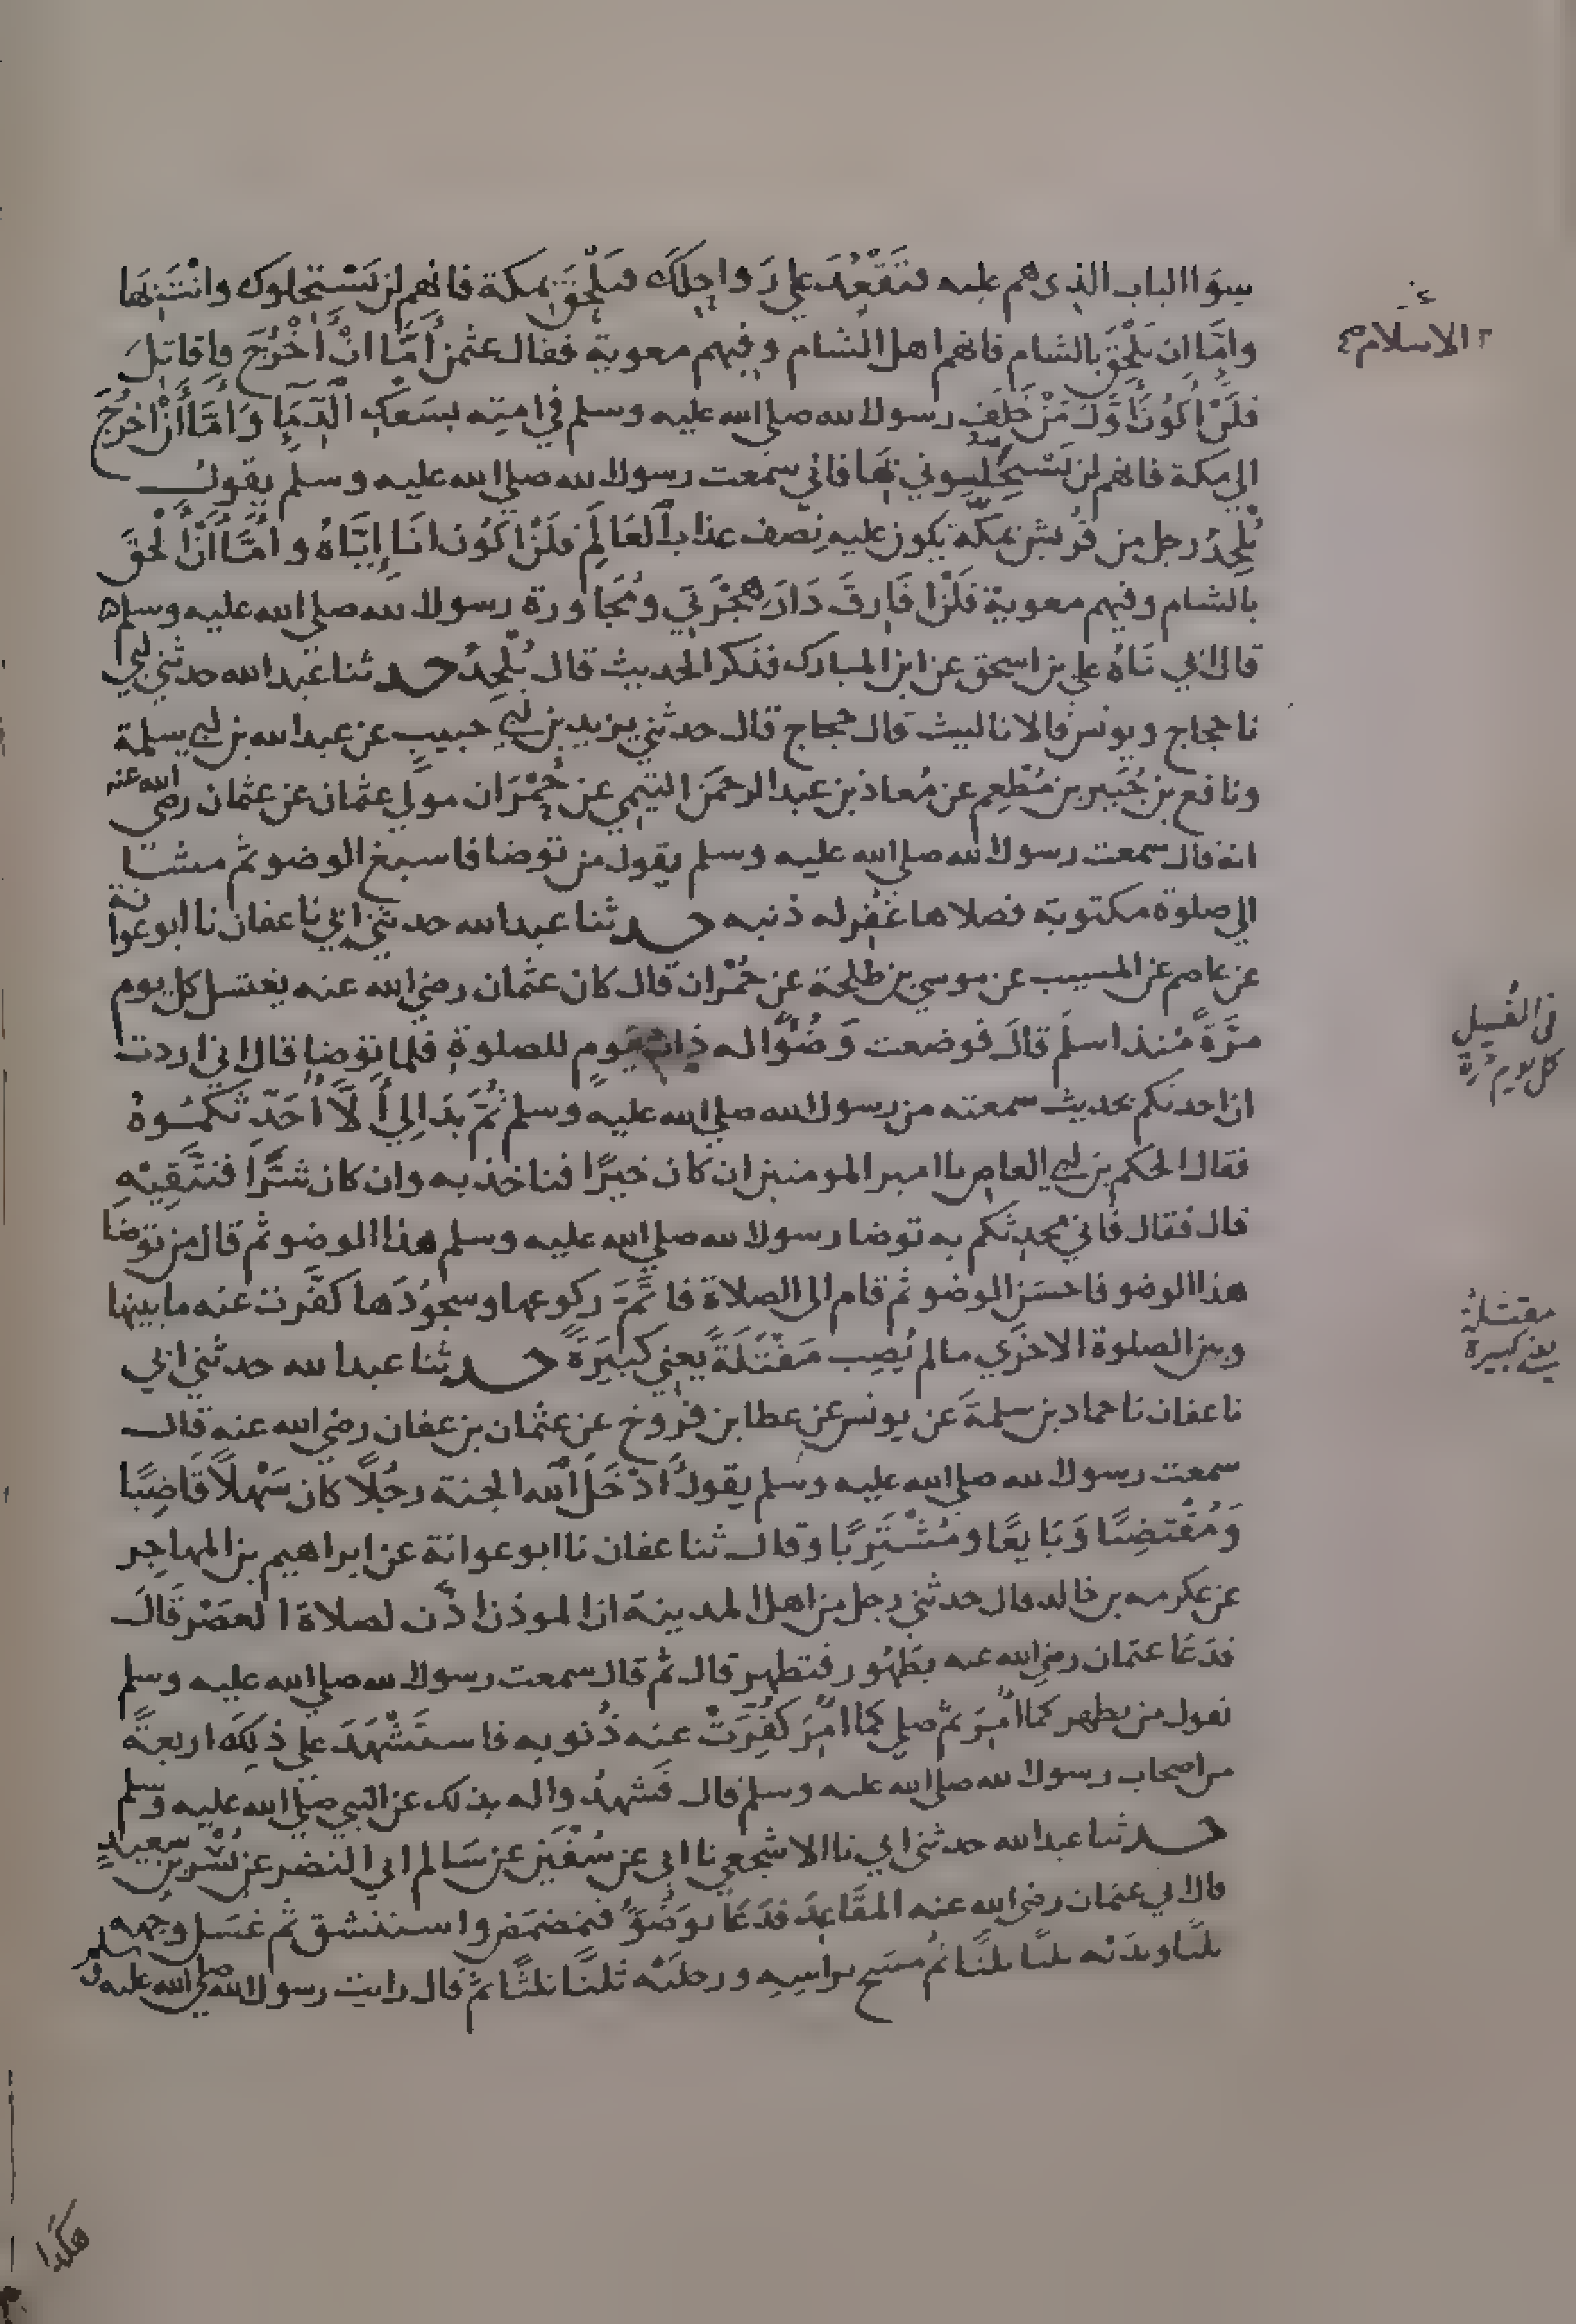 سوا الباب الذي هم عليه فتقعد على رواحلك فتلحق بمكة فانهم لن يستحلوك وانت بها
واما ان تلحق بالشام فانهم اهل الشام وفيهم معوية فقال عثمن أما ان أخرج فاقاتل
فلن أكون أول من خلف رسول الله صلى الله عليه وسلم في امته بسفك الدما واما أن اخرج
الى مكة فانهم لن يستحلوني بها فاني سمعت رسول الله صلى الله عليه وسلم يقول
يلحد رجل من قريش بمكة يكون عليه نصف عذاب العالم فلن اكون انا إياه واما أن ألحق
بالشام وفيهم معوية فلن افارق دار هجرتي ومجاورة رسول الله صلى الله عليه وسلم
قال ابي ناه علي بن اسحق عن ابن المبارك فذكر الحديث قال يلحد حدثنا عبد الله حدثني ابي
نا حجاج ويونس قالا نا ليث قال حجاج قال حدثني يزيد بن ابي حبيب عن عبد الله بن ابي سلمة
ونافع بن جبير بن مطعم عن معاذ بن عبد الرحمن التيمي عن حمران مولى عثمان عن عثمان رضي الله عنه
انه قال سمعت رسول الله صلى الله عليه وسلم يقول من توضا فاسبغ الوضو ثم مشا
الى صلوة مكتوبة فصلاها غفر له ذنبه حدثنا عبد الله حدثني ابي نا عفان نا ابو عوانة
عن عاصم عن المسيب عن موسى بن طلحة عن حمران قال كان عثمان رضي الله عنه يغتسل كل يوم
مرة منذ اسلم قال فوضعت وضوا له ذات يوم للصلوة فلما توضا قال اني اردت
ان احدثكم بحديث سمعته من رسول الله صلى الله عليه وسلم ثم بدا لي ألا أحدثكموه
فقال الحكم بن ابي العاص يا امير المومنين ان كان خيرا فناخذ به وان كان شرا فنتقيه
قال فقال فاني محدثكم به توضا رسول الله صلى الله عليه وسلم هذا الوضو ثم قال من توضا
هذا الوضو فاحسن الوضو ثم قام الى الصلاة فاتم ركوعها وسجودها كفرت عنه ما بينها
وبين الصلوة الاخرى ما لم يصب مقتلة يعني كبيرة حدثنا عبد الله حدثني ابي
نا عفان نا حماد بن سلمة عن يونس عن عطا بن فروخ عن عثمان بن عفان رضي الله عنه قال
سمعت رسول الله صلى الله عليه وسلم يقول أدخل الله الجنة رجلا كان سهلا قاضيا
ومقتضيا وبايعا ومشتريا وقال ثنا عفان نا ابو عوانة عن ابراهيم بن المهاجر
عن عكرمه بن خالد قال حدثني رجل من اهل المدينة ان الموذن اذن لصلاة العصر قال
فدعا عثمان رضي الله عنه بطهور فتطهر قال ثم قال سمعت رسول الله صلى الله عليه وسلم
يقول من تطهر كما أمر ثم صلى كما أمر كفرت عنه ذنوبه فاستشهد على ذلك اربعة
من اصحاب رسول الله صلى الله عليه وسلم قال فشهدوا له بذلك عن النبي صلى الله عليه وسلم
حدثنا عبد الله حدثني ابي نا الاشجعي نا ابي عن سفين عن سالم ابي النضر عن بسر بن سعيد
قال اتى عثمان رضي الله عنه المقاعد فدعا بوضو فمضمض واستنشق ثم غسل وجهه
ثلثا ويديه ثلثا ثلثا ثم مسح براسه ورجليه ثلثا ثلثا ثم قال رايت رسول الله صلى الله عليه وسلم
الاسلام
في الغسل
كل يوم مرة
مقتلة
يعني كبيرة
هكذا